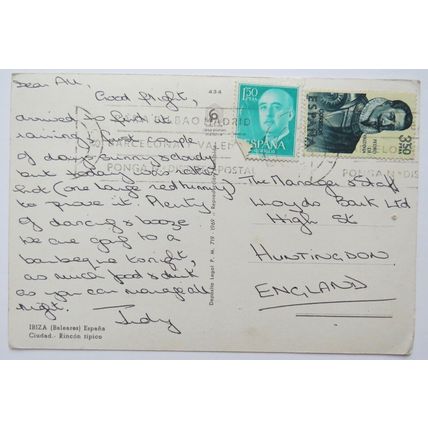 Dear All,
Good flight,
arrived to find it
raining, first couple
of days sunny & cloudy
but
hot (one large red tummy
to prove it. Plenty
of dancing & booze
we are going to a
barbeque tonight,
as much food & drink
as you can manage all
night.
Judy
IBIZA (Baleares) España
Ciudad.- Rincón típico
434
Depósito Legal P. M. 719 - 1969
BILBAO MADRID
BARCELONA VALEN
PONGA DISTRITO POSTAL
PONGA DIS
1,50
PTAS
ESPAÑA
CORREOS
ESPAÑA
3,50
PTAS
The Manager & Staff
Lloyds Bank Ltd
High St
HUNTINGDON
ENGLAND